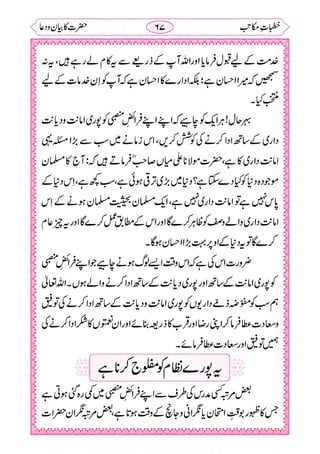 خطباتِ مکاتب ۶۷ حضرت کا بیان وداعا
خدمت کے لیے قبول فرمایا اور اللہ آپ کے ذریعے سے یہ کام لے رہے ہیں، یہ نہ
سمجھیں کہ میرا احسان ہے؛ بلکہ ادارے کا احسان ہے کہ آپ کو ان خدمات کے لیے
منتخب کیا۔
بہر حال! ہر ایک کو چاہیے کہ اپنے اپنے فرائضِ منصبی کو پوری امانت ودیانت
داری کے ساتھ ادا کرنے کی کوشش کریں، اس زمانے میں سب سے بڑا مسئلہ یہی
امانت داری کا ہے، حضرت مولانا علی میاں صاحبؒ فرماتے ہیں کہ: آج کا مسلمان
موجودہ دنیا کو کیا دے سکتا ہے؟ دنیا میں بڑی ترقی ہوئی ہے، سب کچھ ہے، اس دنیا کے
پاس نہیں ہے تو امانت داری نہیں ہے، ایک مسلمان بحیثیت مسلمان ہونے کے اس کے
امانت داری والے وصف کو ظاہر کرے گا اور اس کے مطابق عمل کرے گا اور یہ چیز عام
کرے گا تو یہ دنیا کے اوپر بہت بڑا احسان ہوگا۔
ضرورت اس کی ہے کہ اس وقت ایسے لوگ ہونے چاہیے جو اپنے فرائضِ منصبی
پوری امانت کے ساتھ اور پوری دیانت کے ساتھ ادا کرنے والے ہوں۔ اللہ تعالیٰ
ہم سب کو مفوضہ ذمہ داریوں کو پوری امانت ودیانت کے ساتھ ادا کرنے کی توفیق
وسعادت عطا فرما کر اپنی رضا اور قرب کا ذریعہ بنائے اور ان نعمتوں کا شکر ادا کرنے کی
ہمیں توفیق اور سعادت عطا فرمائے۔
یہ پورے نظام کو مفلوج کرنا ہے
بعض مرتبہ کسی مدرس کی طرف سے اپنے فرائضِ منصبی میں کمی رہ گئی ہوتی ہے
جس کا ظہور بوقتِ امتحان یا نگرانی وجانچ کے وقت ہوتا ہے، بعض مرتبہ نگران حضرات